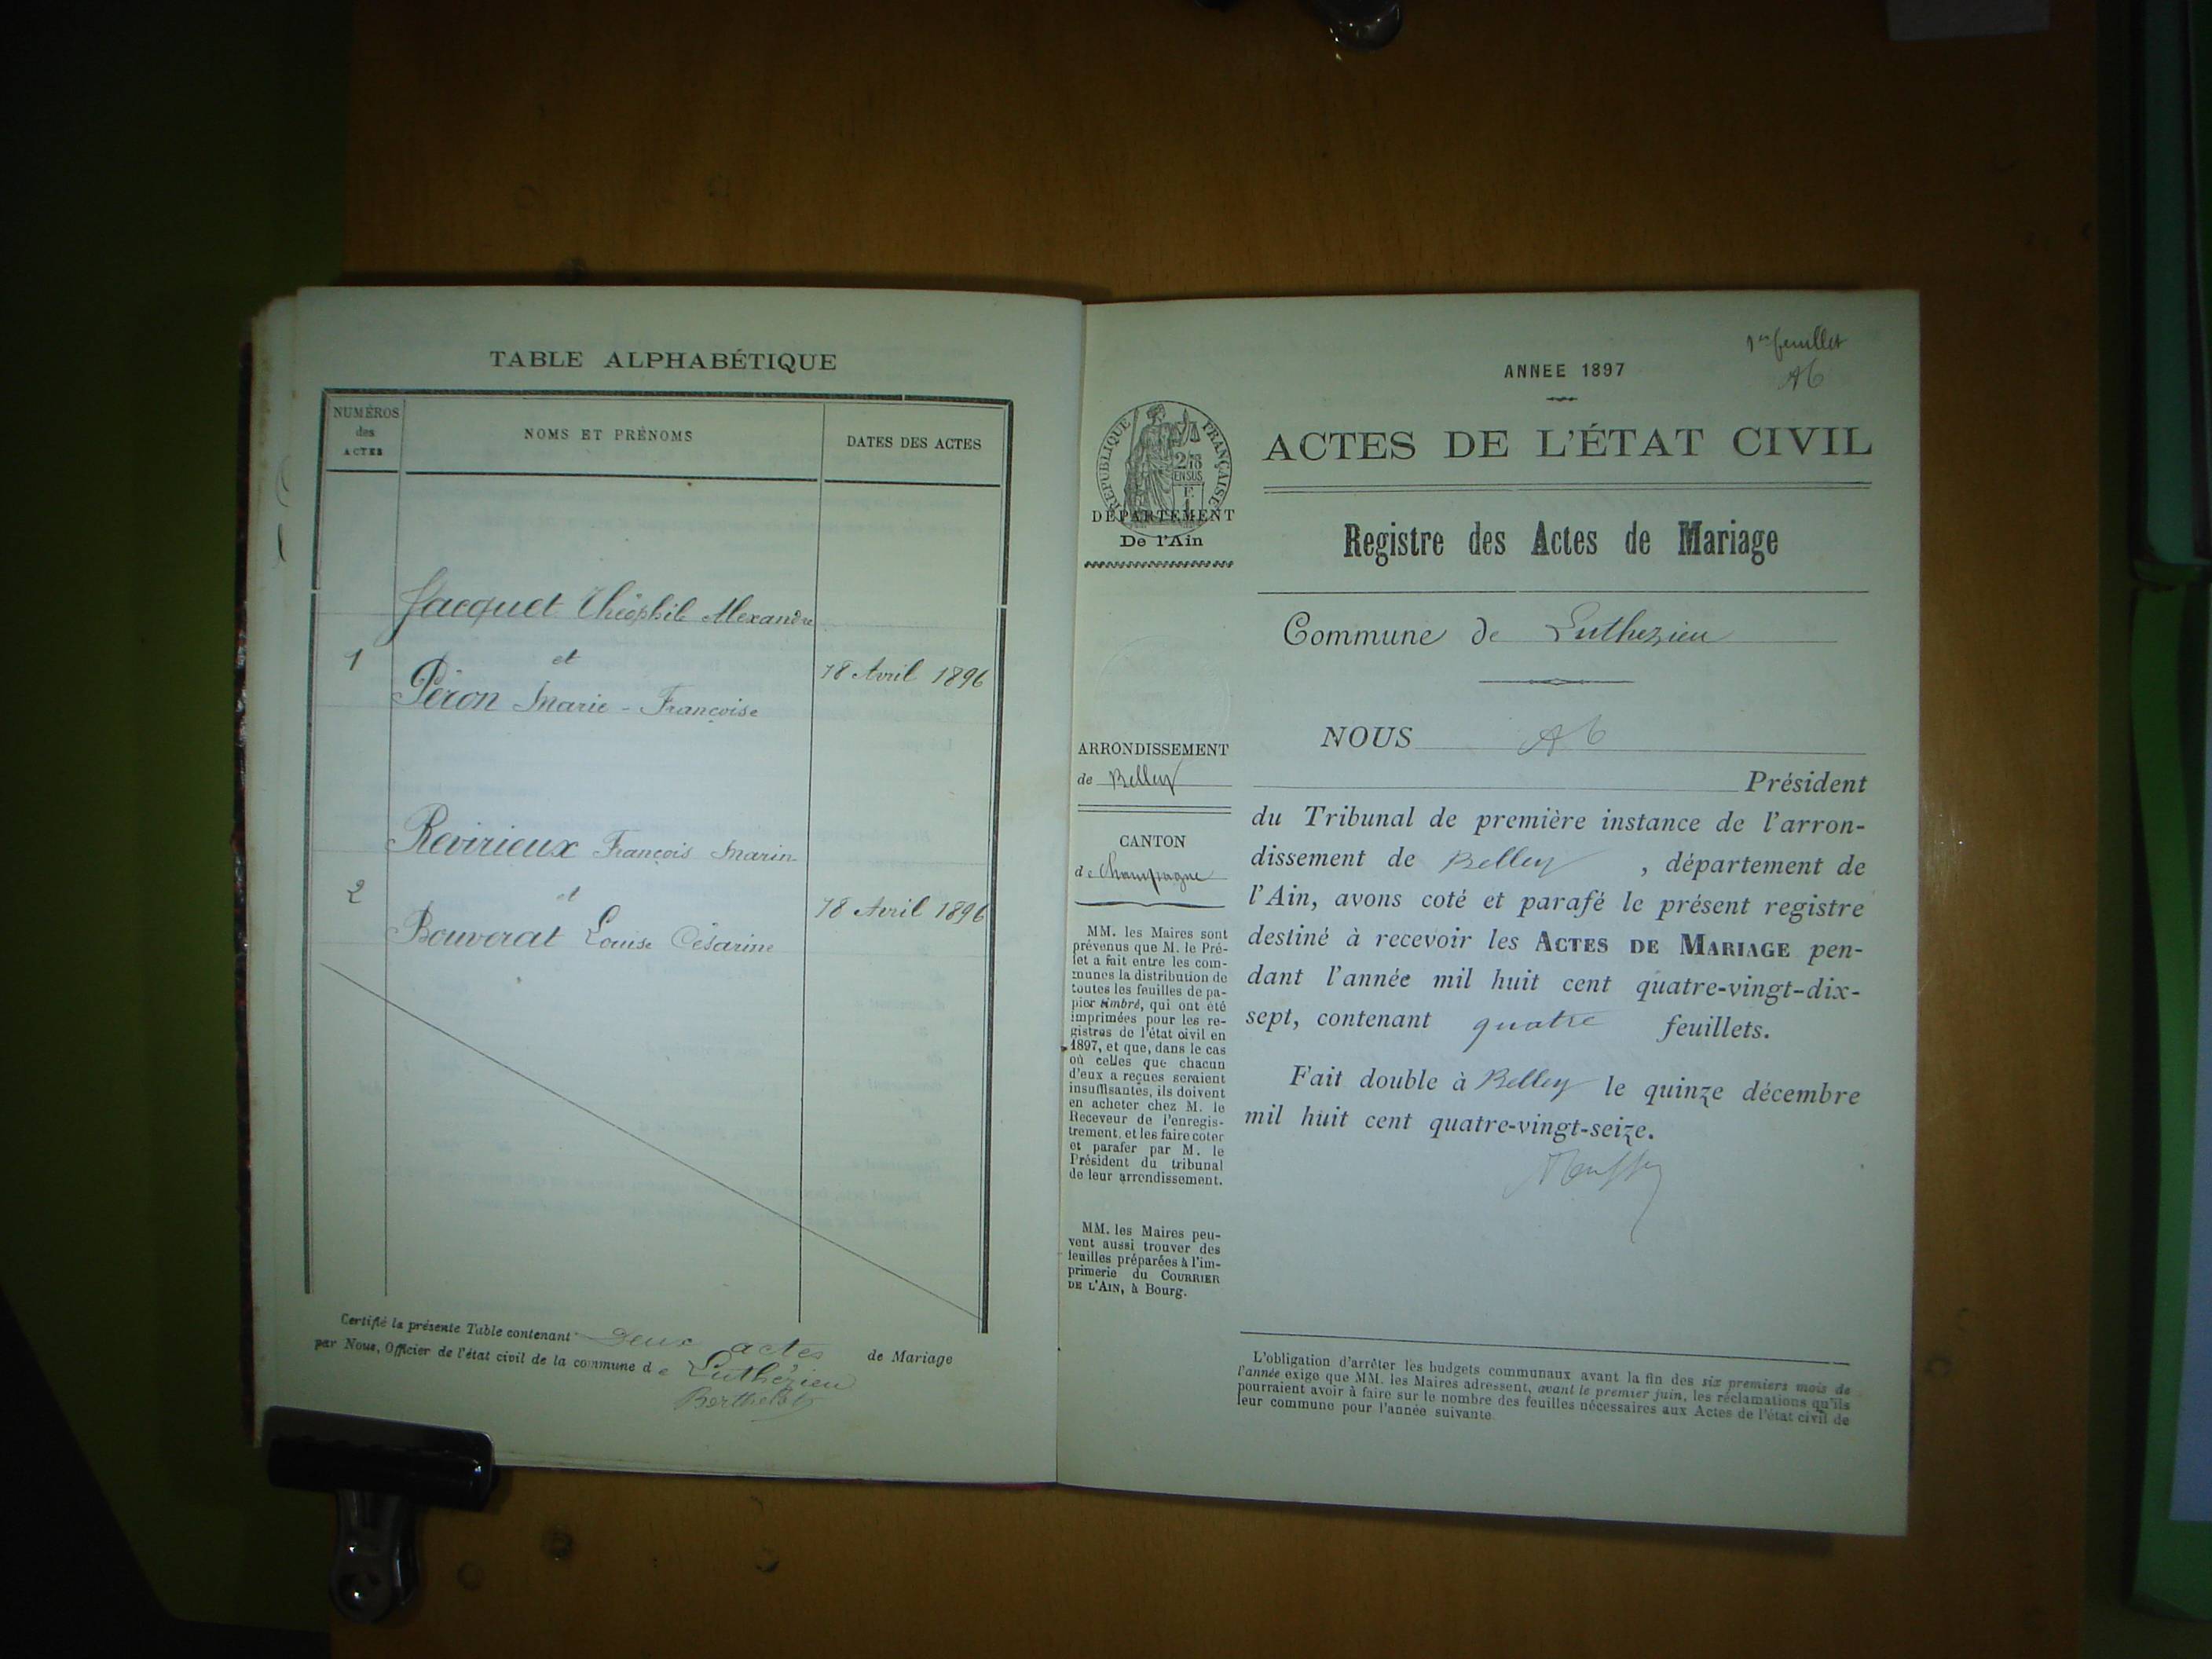 TABLE ALPHABÉTIQUE
NUMÉROS
des
ACTES
NOMS ET PRÉNOMS
DATES DES ACTES
Jacquet Théophile Alexandre
1
et
18 Avril 1896
Péron Marie - Françoise
Revirieux François Marin
2
et
18 Avril 1896
Bouverat Louise Césarine
Certifié la présente Table contenant deux actes de Mariage
par Nous, Officier de l'état civil de la commune de Luthézieu
Berthelot
1er feuillet
ANNEE 1897
RÉPUBLIQUE FRANÇAISE
2/10
EN SUS
DÉPARTEMENT
De l'Ain
ARRONDISSEMENT
de Belley
CANTON
de Champagne
MM. les Maires sont
prévenus que M. le Pré-
fet a fait entre les com-
munes la distribution de
toutes les feuilles de pa-
pier timbré, qui ont été
imprimées pour les re-
gistres de l'état civil en
1897, et que, dans le cas
où celles que chacun
d'eux a reçues seraient
insuffisantes, ils doivent
en acheter chez M. le
Receveur de l'enregis-
trement, et les faire coter
et parafer par M. le
Président du tribunal
de leur arrondissement.
MM. les Maires peu-
vent aussi trouver des
feuilles préparées à l'im-
primerie du COURRIER
DE L'AIN, à Bourg.
ACTES DE L'ÉTAT CIVIL
Registre des Actes de Mariage
Commune de Luthezieu
NOUS
Président
du Tribunal de première instance de l'arron-
dissement de Belley , département de
l'Ain, avons coté et parafé le présent registre
destiné à recevoir les ACTES DE MARIAGE pen-
dant l'année mil huit cent quatre-vingt-dix-
sept, contenant quatre feuillets.
Fait double à Belley le quinze décembre
mil huit cent quatre-vingt-seize.
L'obligation d'arrêter les budgets communaux avant la fin des six premiers mois de
l'année exige que MM. les Maires adressent, avant le premier juin, les réclamations qu'ils
pourraient avoir à faire sur le nombre des feuilles nécessaires aux Actes de l'état civil de
leur commune pour l'année suivante.